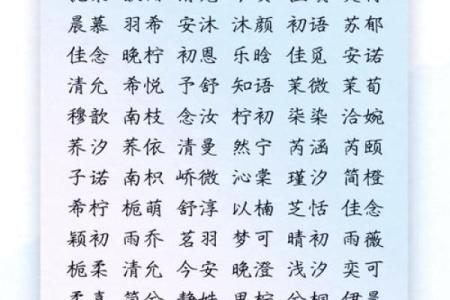 晨慕 羽希 安沐 沐颜 初语 苏郁
佳念 晚柠 初恩 乐晗 佳觅 安诺
清允 希悦 予舒 知语 茉微 茉荀
穆歆 南枝 念汝 柠初 柒染 洽婉
荞汐 荞依 清曼 然宁 芮涵 芮颐
子诺 南枳 峤微 沁棠 瑾汐 简橙
希柠 栀萌 舒淳 以楠 芝恬 佳念
颖初 雨乔 茗羽 梦可 晴初 雨薇
栀柔 清允 今安 晚澄 浅汐 奕可